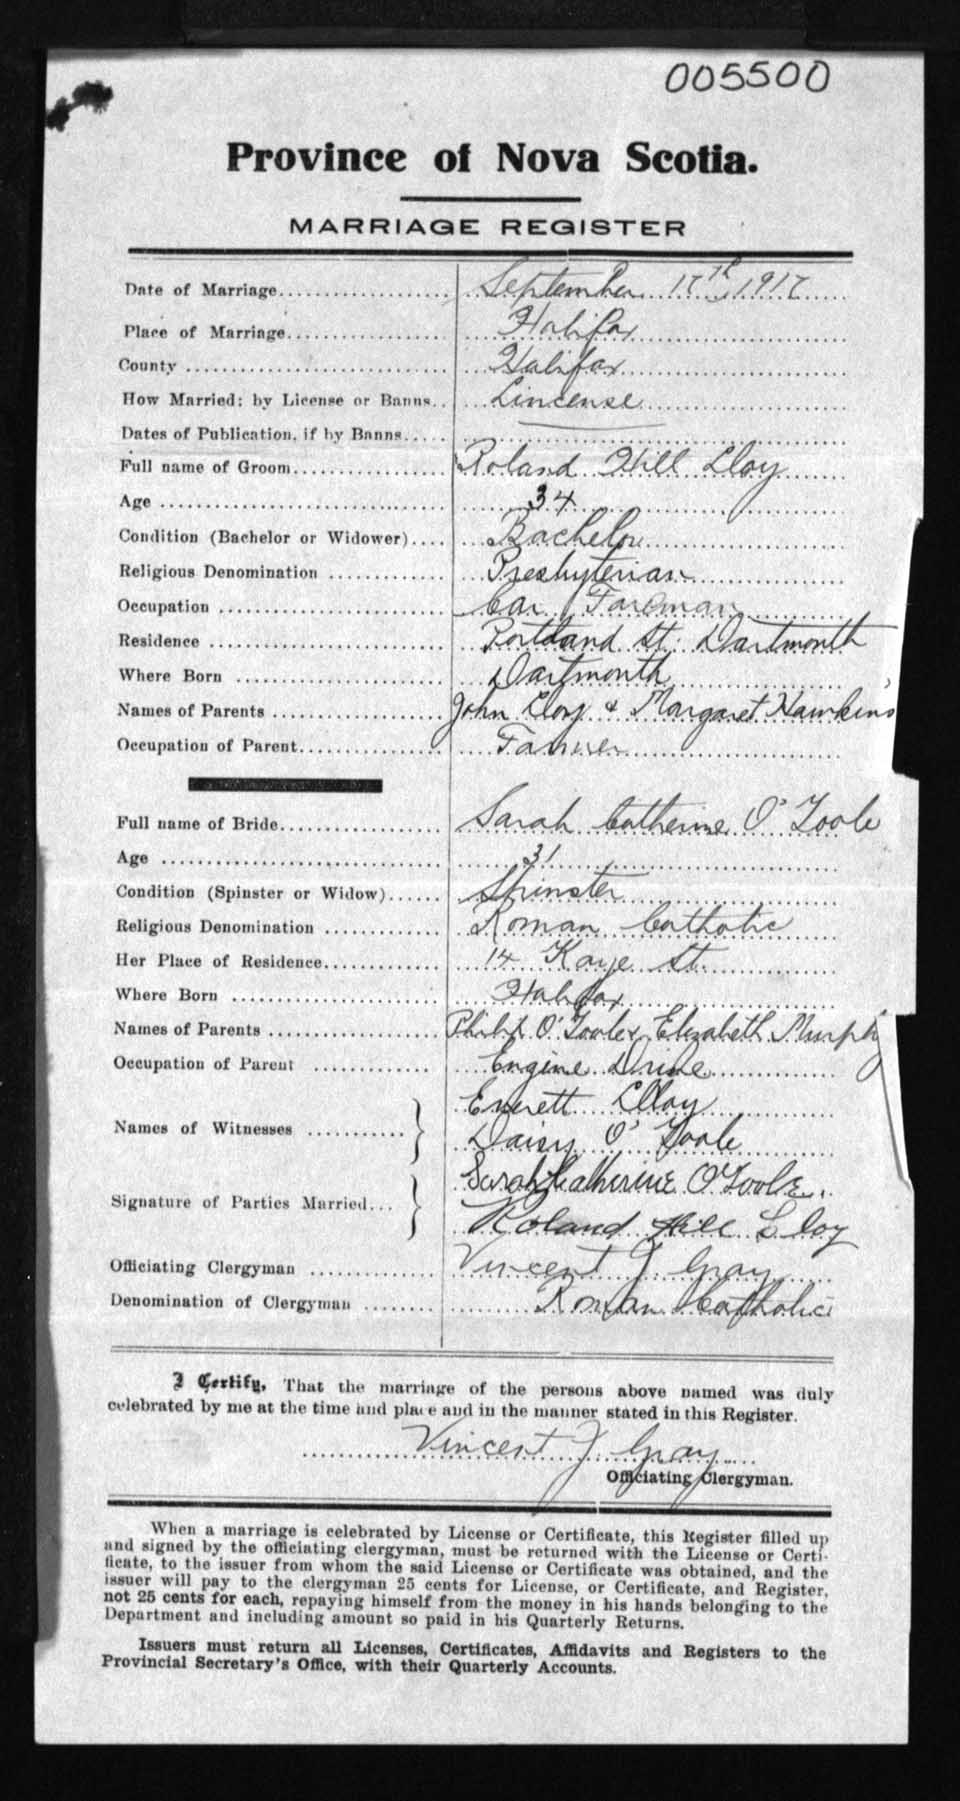 005500
Province of Nova Scotia.
MARRIAGE REGISTER
Date of Marriage September 17th, 1917
Place of Marriage Halifax
County Halifax
How Married: by License or Banns Lincense
Dates of Publication, if by Banns
Full name of Groom Roland Hill Lloy
Age 34
Condition (Bachelor or Widower) Bachelor
Religious Denomination Presbyterian
Occupation Car Foreman
Residence Portland St. Dartmouth
Where Born Dartmouth
Names of Parents John Lloy & Margaret Hawkins
Occupation of Parent Farmer
Full name of Bride Sarah Catherine O'Toole
Age 31
Condition (Spinster or Widow) Spinster
Religious Denomination Roman Catholic
Her Place of Residence 14 Kaye St.
Where Born Halifax
Names of Parents Philip O'Toole & Elizabeth Murphy
Occupation of Parent Engine Drive
Everett Lloy
Names of Witnesses
Daisy O'Toole
Sarah Catherine O'Toole.
Signature of Parties Married
Roland Hill Lloy
Officiating Clergyman Vincent J Gray
Denomination of Clergyman Roman Catholic
I Certify, That the marriage of the persons above named was duly
celebrated by me at the time and place and in the manner stated in this Register.
Vincent J Gray
Officiating Clergyman.
When a marriage is celebrated by License or Certificate, this Register filled up
and signed by the officiating clergyman, must be returned with the License or Certi-
ficate, to the issuer from whom the said License or Certificate was obtained, and the
issuer will pay to the clergyman 25 cents for License, or Certificate, and Register,
not 25 cents for each, repaying himself from the money in his hands belonging to the
Department and including amount so paid in his Quarterly Returns.
Issuers must return all Licenses, Certificates, Affidavits and Registers to the
Provincial Secretary's Office, with their Quarterly Accounts.